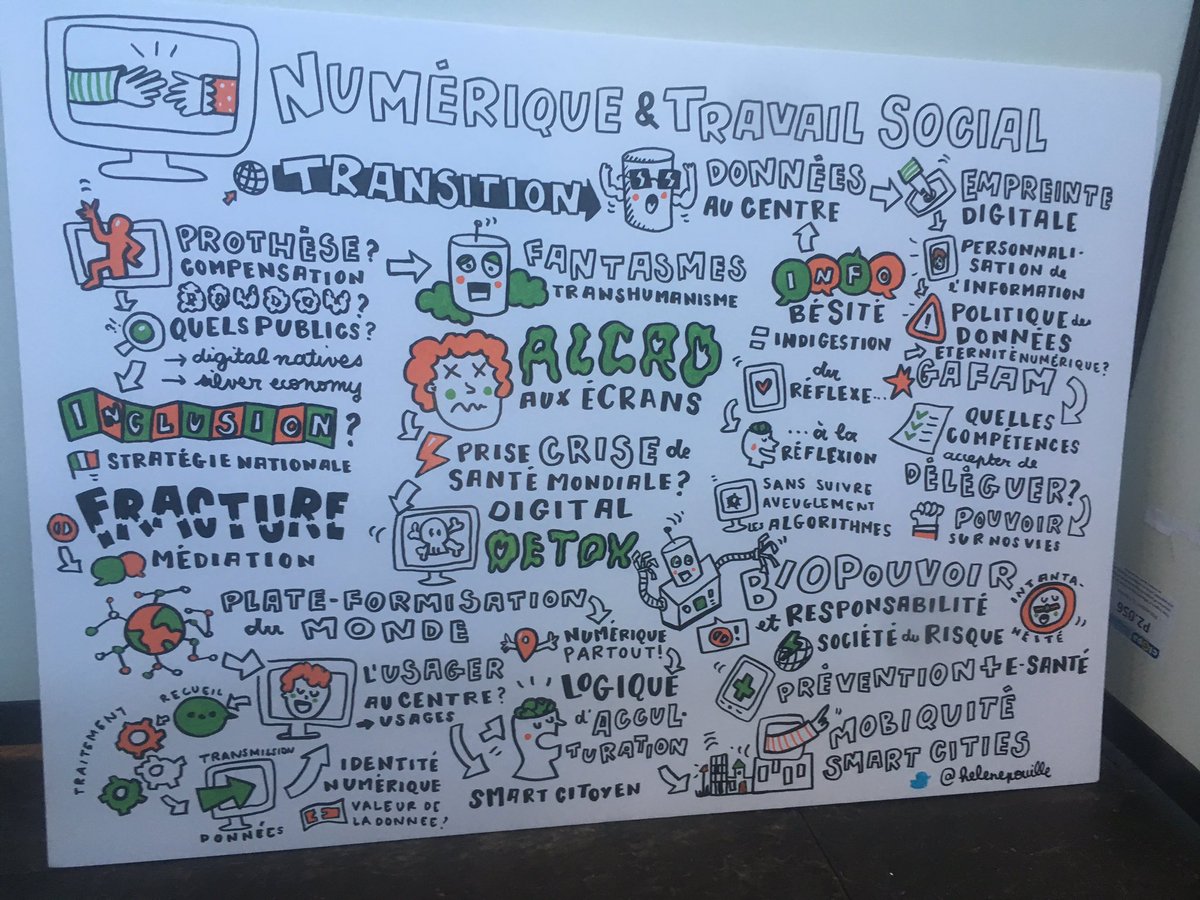 NUMÉRIQUE & TRAVAIL SOCIAL
TRANSITION
DONNÉES
AU CENTRE
EMPREINTE
DIGITALE
PERSONNALI-
SATION de
l'INFORMATION
POLITIQUE des
DONNÉES
ÉTERNITÉ NUMÉRIQUE?
GAFAM
QUELLES
COMPÉTENCES
accepter de
DÉLÉGUER?
POUVOIR
SUR NOS VIES
PROTHÈSE?
COMPENSATION
DOUDOU?
QUELS PUBLICS?
→ digital natives
→ silver economy
INCLUSION?
STRATÉGIE NATIONALE
FRACTURE
MÉDIATION
FANTASMES
TRANSHUMANISME
ALCRO
AUX ÉCRANS
PRISE CRISE de
SANTÉ MONDIALE?
DIGITAL
DETOX
INFO
BÉSITÉ
= INDIGESTION
du
RÉFLEXE...
...à la
RÉFLEXION
SANS SUIVRE
AVEUGLEMENT
LES ALGORITHMES
BIOPOUVOIR
et RESPONSABILITÉ
INSTANTA-
NÉITÉ
SOCIÉTÉ du RISQUE
PRÉVENTION + E-SANTÉ
MOBIQUITÉ
SMART CITIES
PLATE-FORMISATION
du MONDE
NUMÉRIQUE
PARTOUT!
L'USAGER
AU CENTRE?
→ USAGES
RECUEIL
TRAITEMENT
TRANSMISSION
DONNÉES
IDENTITÉ
NUMÉRIQUE
VALEUR DE
LA DONNÉE?
LOGIQUE
d'ACCUL-
TURATION
SMART CITOYEN
@helenepouille
P2.056